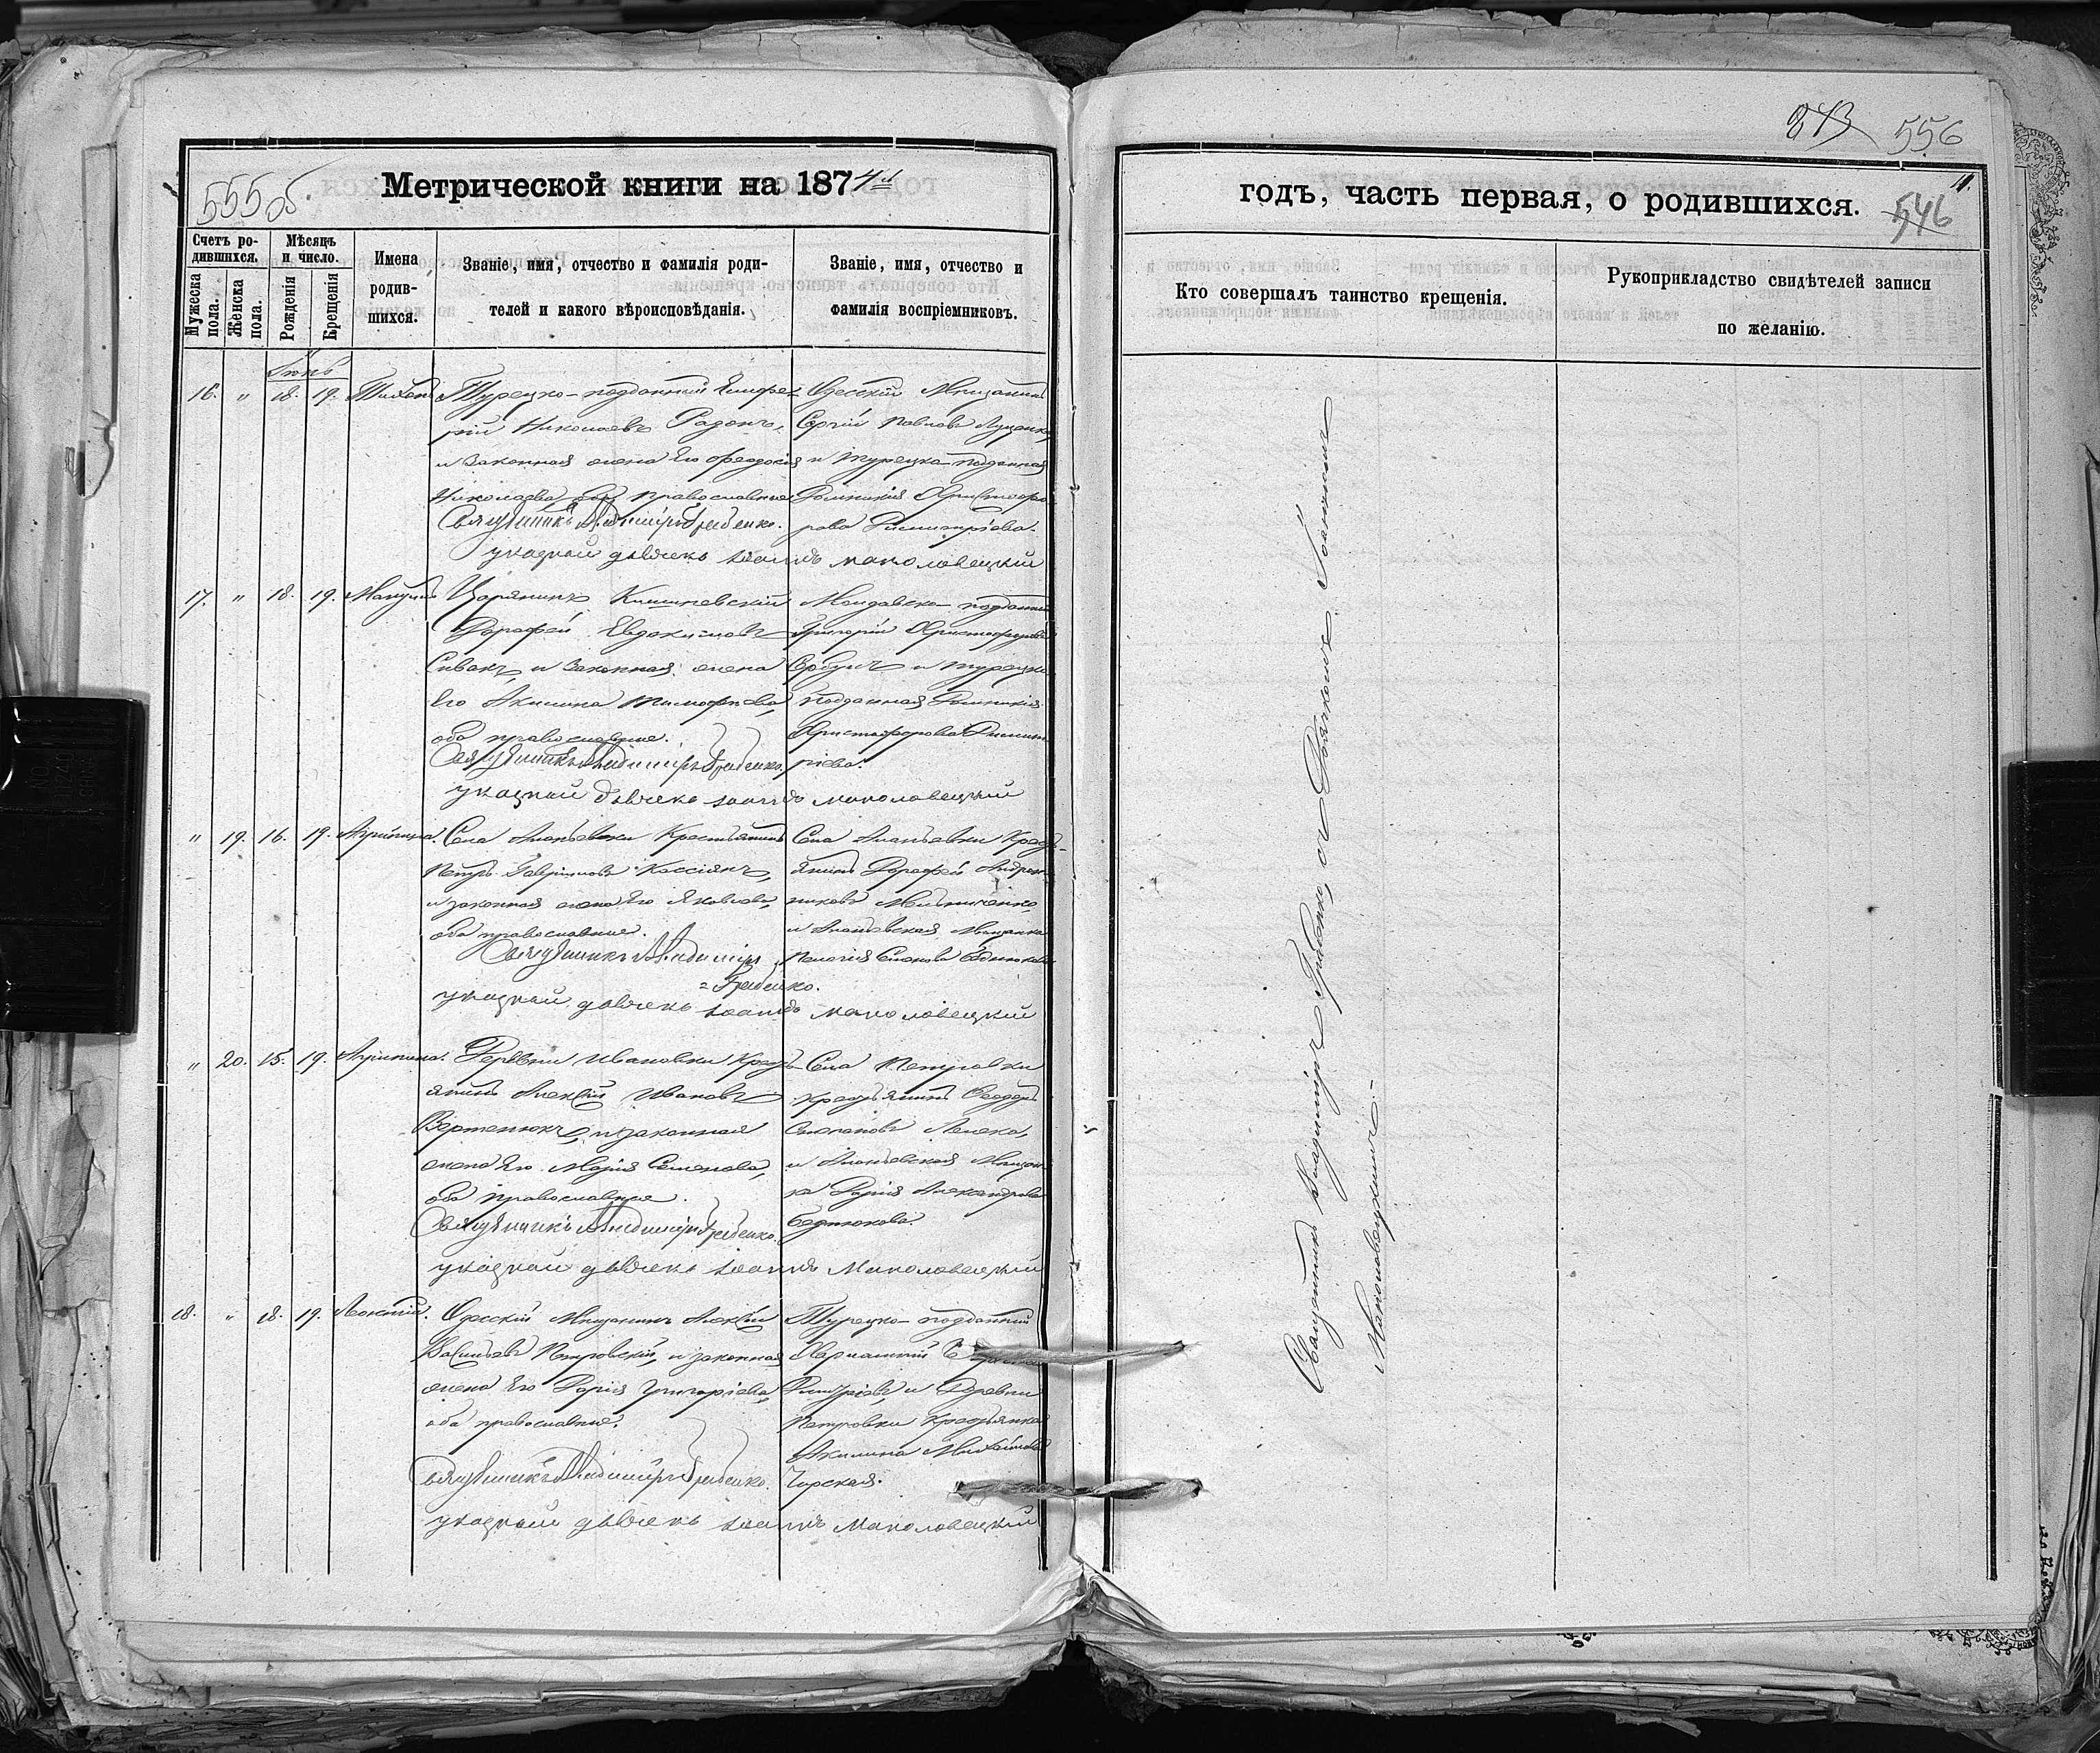 555 об.
Метрической книги на 1874й
Счетъ родившихся.
Мужеска пола.
Женска пола.
Мѣсяцъ и число.
Рожденія
Крещенія
Имена родившихся.
Званіе, имя, отчество и фамилія родителей и какого вѣроисповѣданія.
Званіе, имя, отчество и фамилія воспріемниковъ.
Іюнь
16. " 18. 19. Тихонъ
Турецко-подданный
Николаевъ
и законная жена его Феодосія
Николаева, оба православные.
Священникъ Владиміръ Грабенко.
указной дьячекъ Іоаннъ Маполовецкій
Одесскій Мѣщанинъ
Сергій Павловъ
и турецко-подданная
Домникія Христофорова Димитріева.
17. " 18. 19. Мануилъ
Царянинъ Кишиневскій
Дорофей Евдокимовъ
Сивакъ, и законная жена
его Акилина Тимофеева,
оба православные.
Священникъ Владиміръ Грабенко.
указной дьячекъ Іоаннъ Маполовецкій
Молдавско-подданный
Григорій Христофоровъ
и турецко
подданная Домникія
Христофорова Димитріева.
" 19. 16. 19. Агрипина.
Села Ананьевки Крестьянинъ
Петръ Гавриловъ Кассіянъ,
и законная жена его Яковлева,
оба православные.
Священникъ Владиміръ
Грабенко.
указной дьячекъ Іоаннъ Маполовецкій
Села Ананьевки Крестьянинъ Дорофей
Мельниченко,
и Ананьевская Мѣщанка
Пелагія Семенова
" 20. 15. 19. Агрипина.
Деревни Ивановки Крестьянинъ Алексій Ивановъ
Вертенюкъ, и законная
жена его Марія Семенова,
оба православные.
Священникъ Владиміръ Грабенко.
указной дьячекъ Іоаннъ Маполовецкій
Села Петровки
крестьянинъ Феодоръ
Степановъ
и Ананьевская Мѣщанка Дарія Александрова
Бедтюкова.
18. " 18. 19. Леонтій.
Одесскій Мѣщанинъ Алексій
Васильевъ Петровскій, и законная
жена его Дарія Григоріева,
оба православные.
Священникъ Владиміръ Грабенко.
указной дьячекъ Іоаннъ Маполовецкій
Турецко-подданный
Димитріевъ, и Деревни
Петровки крестьянка
Акилина Михайлова
Чорская.
243 556
годъ, часть первая, о родившихся. 546
Кто совершалъ таинство крещенія.
Рукоприкладство свидѣтелей записи по желанію.
Священникъ Владиміръ Грабенко, съ Дьячкомъ Іоанномъ
Маполовецкимъ.